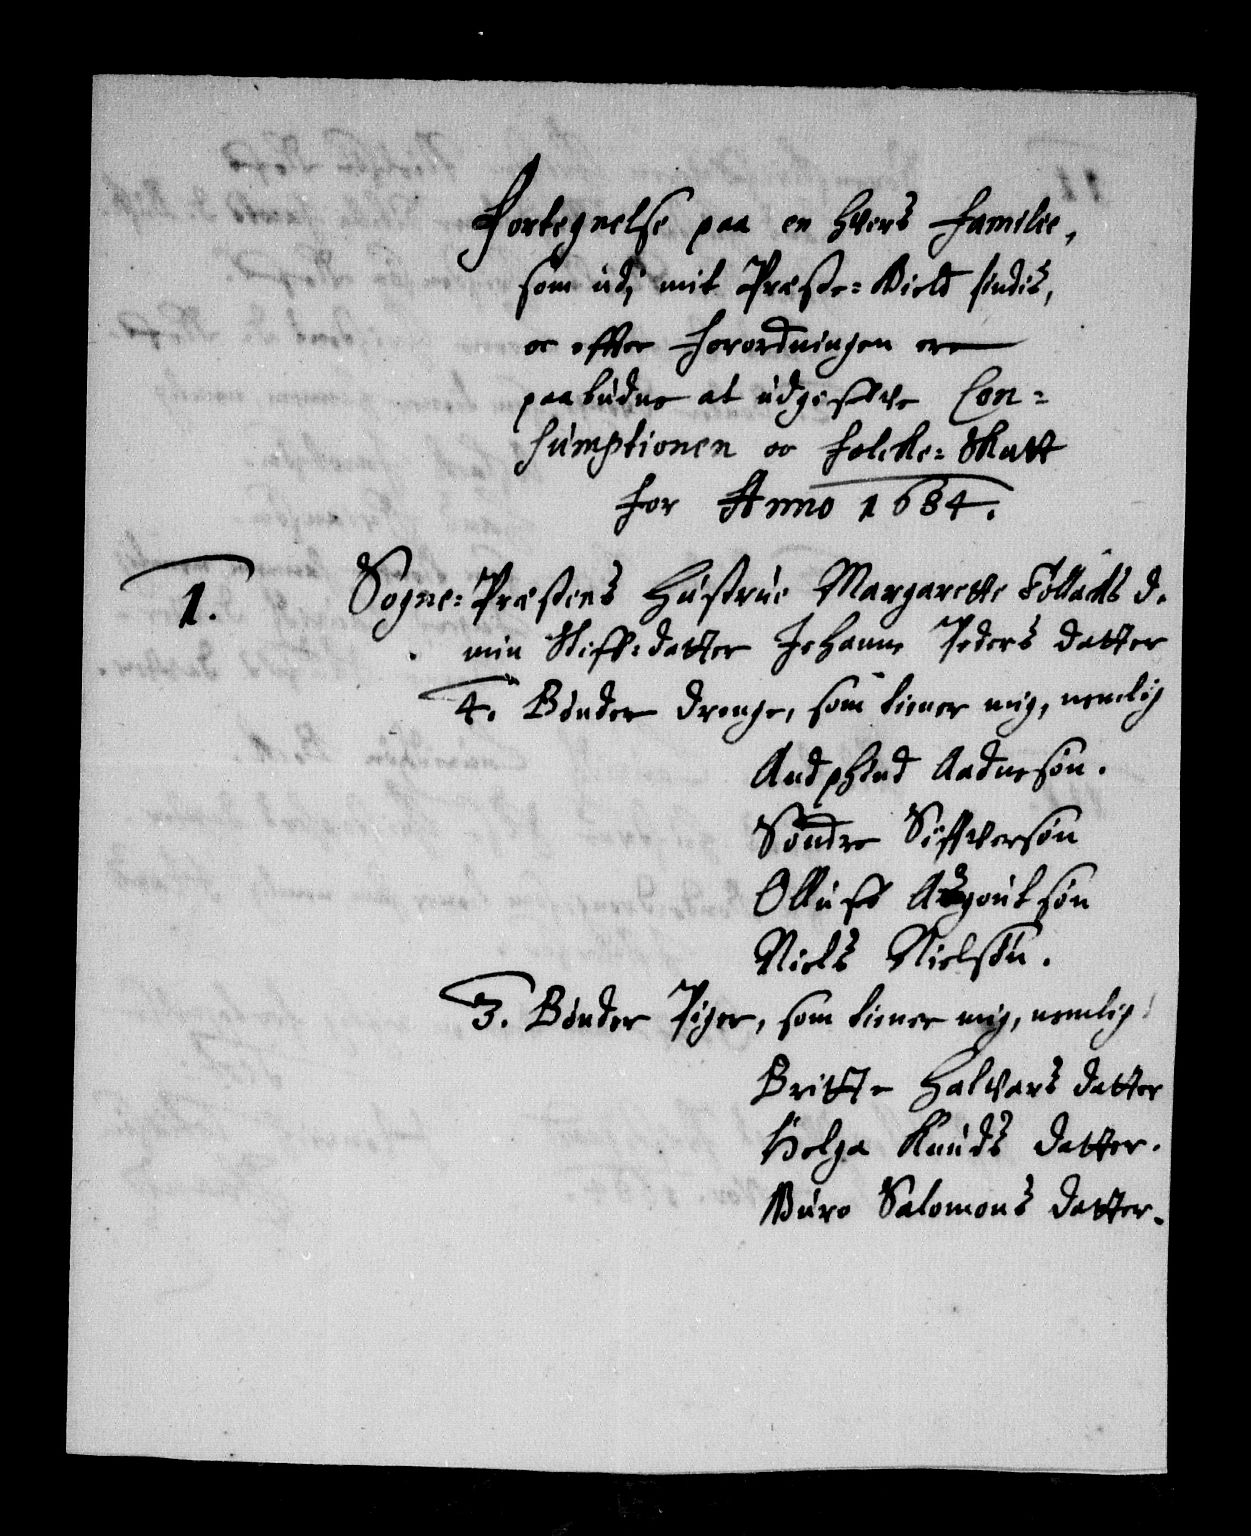 Fortegnelse paa en hvers familie,
som udj mit Præste-Gield findis,
oc effter forordningen ere
paabudne at udgiffve Con-
sumptionen oc folcke-Skatt
for Anno 1684.
1. Sogne-Præstens Hustrue Margarette Follachs d.
min Stiff-datter Johanne Peders datter
4. Bønder drenge, som tiener mig, nemlig
Audphind Aadnesøn.
Søndre Siffversøn
Olluff Asgoutsøn
Niels Nielsøn.
3. Bønder Piger, som tiener mig, nemlig
Britte Halvars datter
Helga Knuds datter.
Guro Salomons datter.